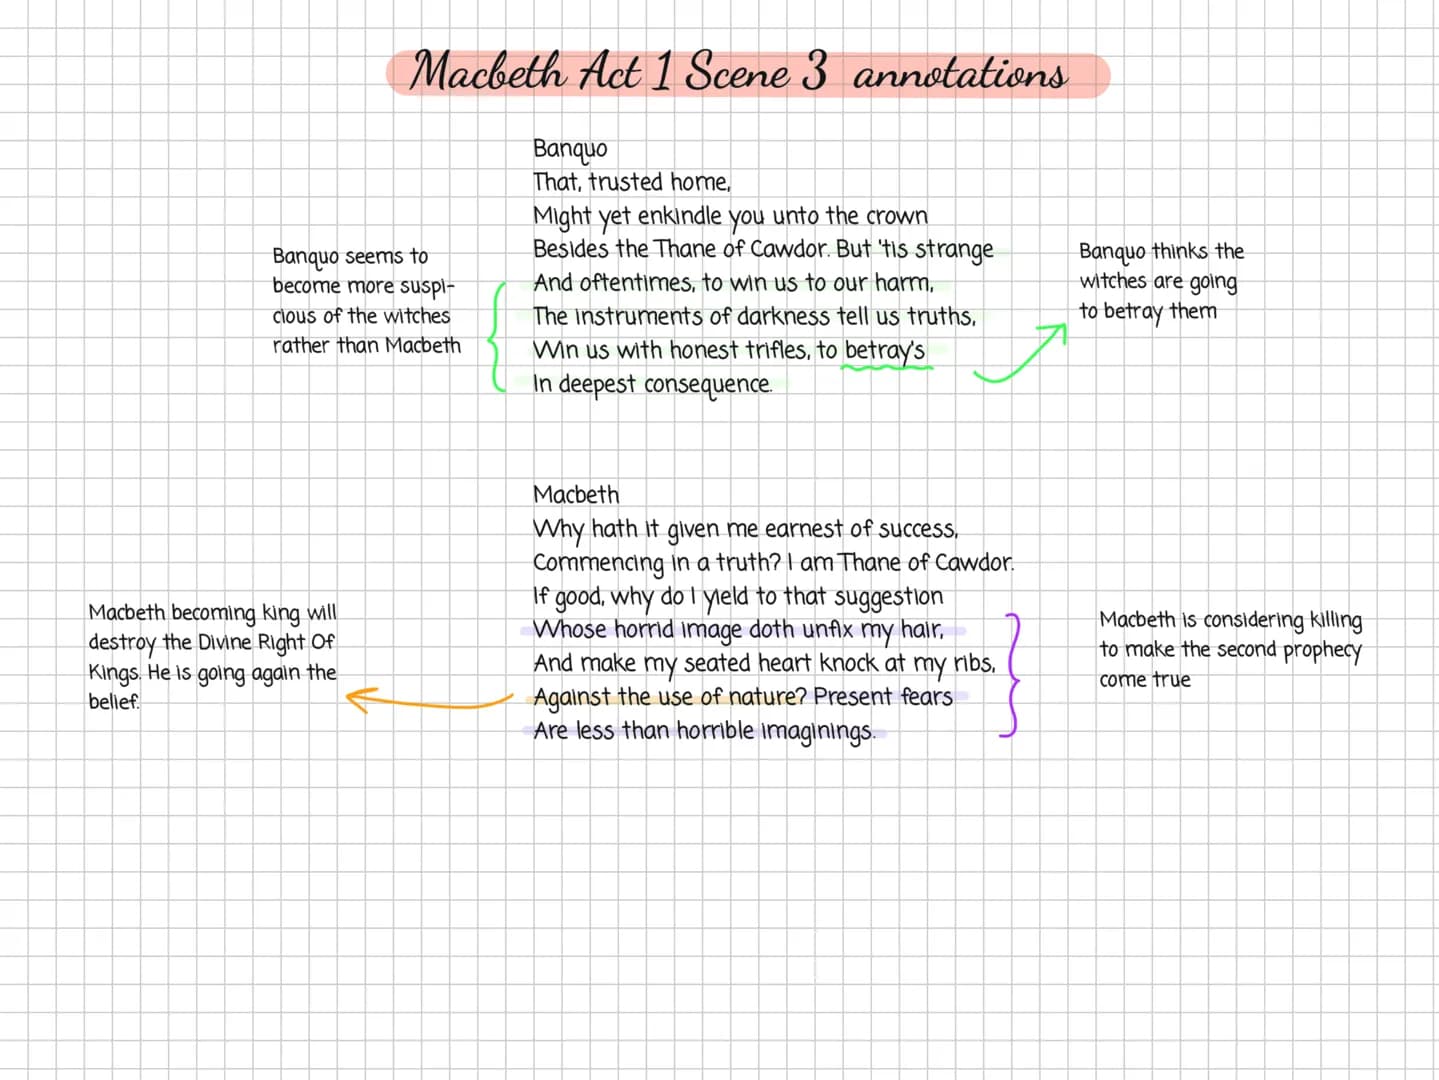 Macbeth Act 1 Scene 3 annotations
Banquo
That, trusted home,
Might yet enkindle you unto the crown
Besides the Thane of Cawdor. But 'tis strange
And oftentimes, to win us to our harm,
The instruments of darkness tell us truths,
Win us with honest trifles, to betray's
In deepest consequence.
Banquo seems to
become more suspi-
cious of the witches
rather than Macbeth
Banquo thinks the
witches are going
to betray them
Macbeth
Why hath it given me earnest of success,
Commencing in a truth? I am Thane of Cawdor.
If good, why do I yield to that suggestion
Whose horrid image doth unfix my hair,
And make my seated heart knock at my ribs,
Against the use of nature? Present fears
Are less than horrible imaginings.
Macbeth becoming king will
destroy the Divine Right Of
Kings. He is going again the
belief.
Macbeth is considering killing
to make the second prophecy
come true